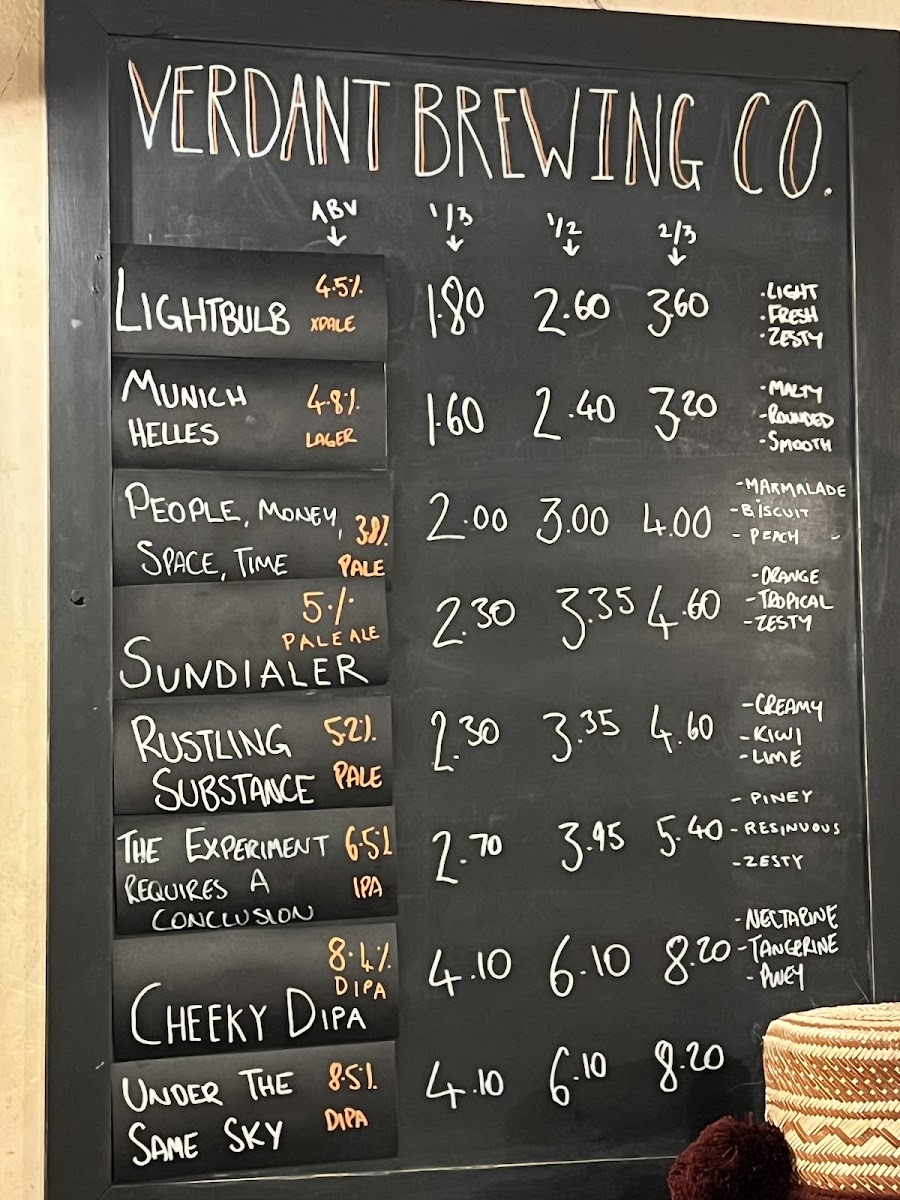 VERDANT BREWING CO.
ABV 1/3 1/2 2/3
LIGHTBULB 4.5% XPALE 1.80 2.60 3.60
·LIGHT
·FRESH
·ZESTY
MUNICH
HELLES
4.8%
LAGER
1.60 2.40 3.20
-MALTY
-ROUNDED
-SMOOTH
PEOPLE, MONEY,
SPACE, TIME
3.8%
PALE
2.00 3.00 4.00
-MARMALADE
-BISCUIT
- PEACH
5%
PALE ALE
SUNDIALER
2.30 3.35 4.60
-ORANGE
-TROPICAL
-ZESTY
RUSTLING
SUBSTANCE
5.2%
PALE
2.30 3.35 4.60
-CREAMY
-KIWI
-LIME
THE EXPERIMENT
REQUIRES A
CONCLUSION
6.5%
IPA
2.70 3.95 5.40
- PINEY
- RESINUOUS
-ZESTY
8.4%
DIPA
CHEEKY DIPA
4.10 6.10 8.20
-NECTARINE
-TANGERINE
-PINEY
UNDER THE
SAME SKY
8.5%
DIPA
4.10 6.10 8.20